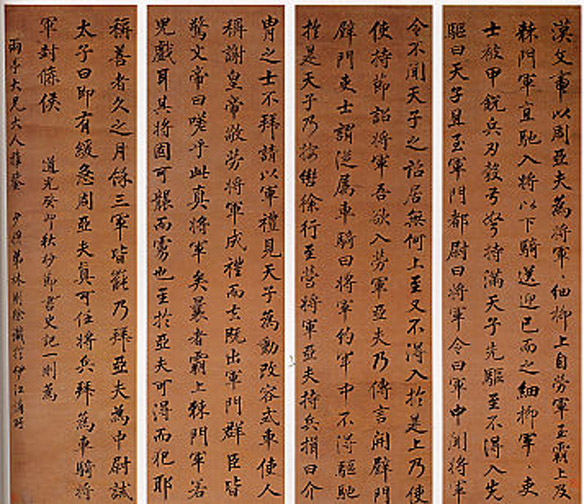 漢文帝以周亞夫軍細柳上自勞軍至霸上及
棘門軍直馳入將以下騎送迎已而之細柳軍吏
士被甲銳兵刃彀弓弩持滿天子先驅至不得入先
驅曰天子且至軍門都尉曰將軍令曰軍中聞將軍
令不聞天子之詔居無何上至又不得入於是上乃使
使持節詔將軍吾欲入勞軍亞夫乃傳言開壁門
壁門吏士謂從屬車騎曰將軍約軍中不得驅馳
於是天子乃按轡徐行至營將軍亞夫持兵揖曰介
冑之士不拜請以軍禮見天子為動改容式車使人
稱謝皇帝敬勞將軍成禮而去既出軍門群臣皆
驚文帝曰嗟乎此真將軍矣曩者霸上棘門軍若
兒戲耳其將固可襲而虜也至於亞夫可得而犯耶
稱善者久之月餘三軍皆罷乃拜亞夫為中尉誡
太子曰即有緩急周亞夫真可任將兵拜為車騎將
軍封條侯 道光癸卯秋杪節書史記一則為
雨亭大兄大人雅鑒 少穆弟林則徐識於伊江